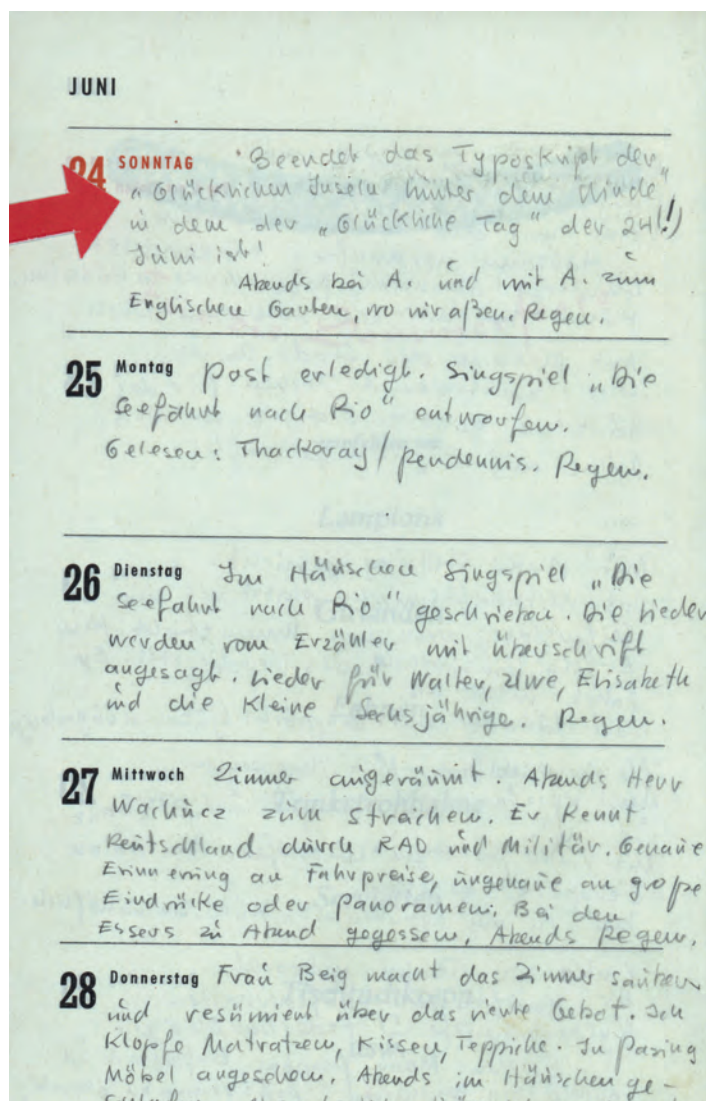 JUNI
24 SONNTAG Beendet das Typoskript der
„Glücklichen Inseln hinter dem Winde"
in dem der „Glückliche Tag" der 24(!)
Juni ist!
Abends bei A. und mit A. zum
Englischen Garten, wo wir aßen. Regen.
25 Montag Post erledigt. Singspiel „Die
Seefahrt nach Rio" entworfen.
Gelesen: Thackaray / Pendennis. Regen.
26 Dienstag Im Häuschen Singspiel „Die
Seefahrt nach Rio" geschrieben. Die Lieder
werden vom Erzähler mit Überschrift
angesagt. Lieder für Walter, Uwe, Elisabeth
und die Kleine Sechsjährige. Regen.
27 Mittwoch Zimmer aufgeräumt. Abends Herr
zum Streichen. Er kennt
Deutschland durch RAD und Militär. Genaue
Erinnerung an Fahrpreise, ungenaue an große
Eindrücke oder Panoramen. Bei den
Essers zu Abend gegessen. Abends Regen.
28 Donnerstag Frau Beig macht das Zimmer sauber
und resümiert über das vierte Gebot. Ich
klopfe Matratzen, Kissen, Teppiche. In Pasing
Möbel angesehen. Abends im Häuschen ge-